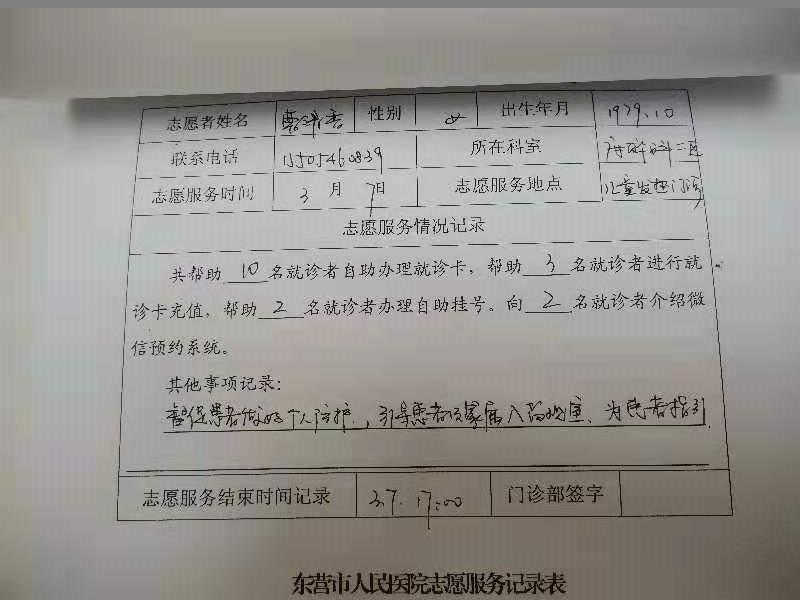 志愿者姓名 性别 女 出生年月 1979.10
联系电话 15305460839 所在科室
志愿服务时间 3月7日 志愿服务地点 儿童发热门诊
志愿服务情况记录
共帮助 10 名就诊者自助办理就诊卡，帮助 3 名就诊者进行就
诊卡充值，帮助 2 名就诊者办理自助挂号。向 2 名就诊者介绍微
信预约系统。
其他事项记录：
督促患者做好个人防护，引导患者及家属入留观室、为患者指引
志愿服务结束时间记录 3.7. 17:00 门诊部签字
东营市人民医院志愿服务记录表